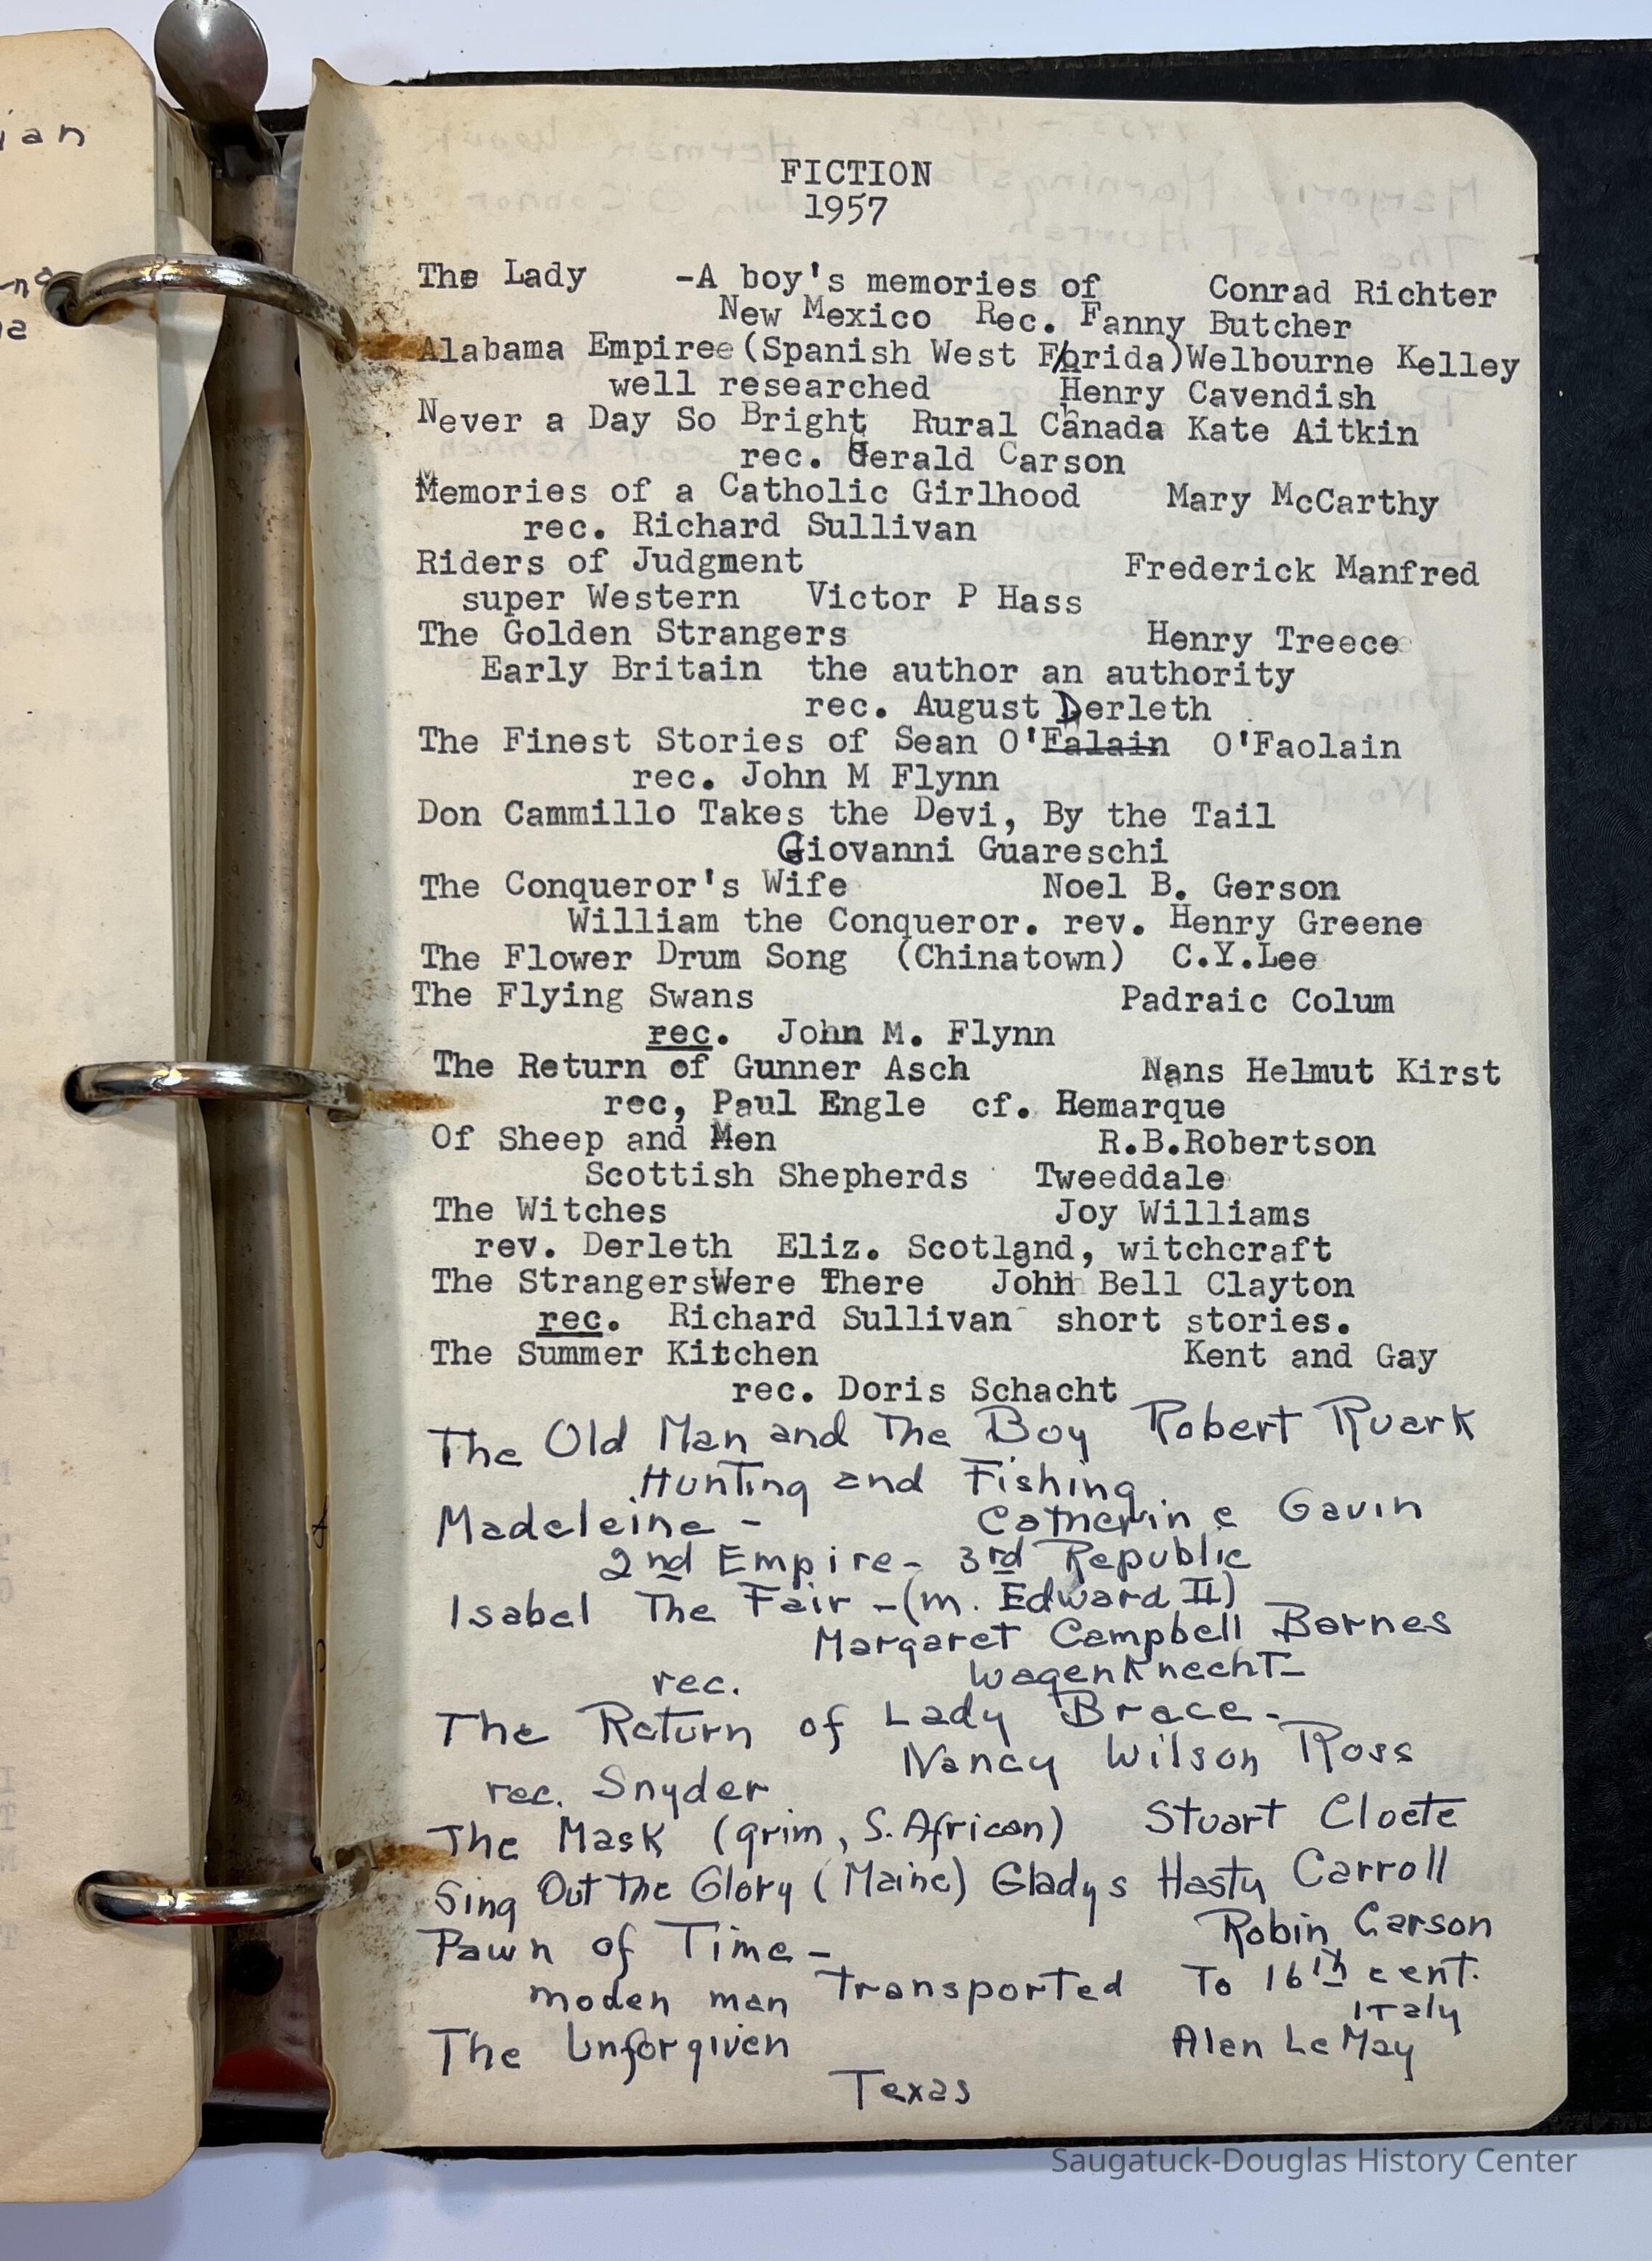 ian
FICTION
1957
The Lady -A boy's memories of Conrad Richter
New Mexico Rec. Fanny Butcher
Alabama Empiree (Spanish West Florida) Welbourne Kelley
well researched Henry Cavendish
Never a Day So Bright Rural Canada Kate Aitkin
rec. Gerald Carson
Memories of a Catholic Girlhood Mary McCarthy
rec. Richard Sullivan
Riders of Judgment Frederick Manfred
super Western Victor P Hass
The Golden Strangers Henry Treece
Early Britain the author an authority
rec. August Derleth
The Finest Stories of Sean O'Falain O'Faolain
rec. John M Flynn
Don Cammillo Takes the Devi, By the Tail
Giovanni Guareschi
The Conqueror's Wife Noel B. Gerson
William the Conqueror. rev. Henry Greene
The Flower Drum Song (Chinatown) C.Y.Lee
The Flying Swans Padraic Colum
rec. John M. Flynn
The Return of Gunner Asch Hans Helmut Kirst
rec, Paul Engle cf. Remarque
Of Sheep and Men R.B.Robertson
Scottish Shepherds Tweeddale
The Witches Joy Williams
rev. Derleth Eliz. Scotland, witchcraft
The StrangersWere There John Bell Clayton
rec. Richard Sullivan short stories.
The Summer Kitchen Kent and Gay
rec. Doris Schacht
The Old Man and The Boy Robert Ruark
Hunting and Fishing
Madeleine - Catherine Gavin
2nd Empire - 3rd Republic
Isabel The Fair - (m. Edward II)
Margaret Campbell Barnes
rec. Wagenknecht-
The Return of Lady Brace -
Nancy Wilson Ross
rec. Snyder
The Mask (grim, S. African) Stuart Cloete
Sing Out The Glory (Maine) Gladys Hasty Carroll
Pawn of Time - Robin Carson
moden man transported To 16th cent.
Italy
The Unforgiven Alan Le May
Texas
Saugatuck-Douglas History Center